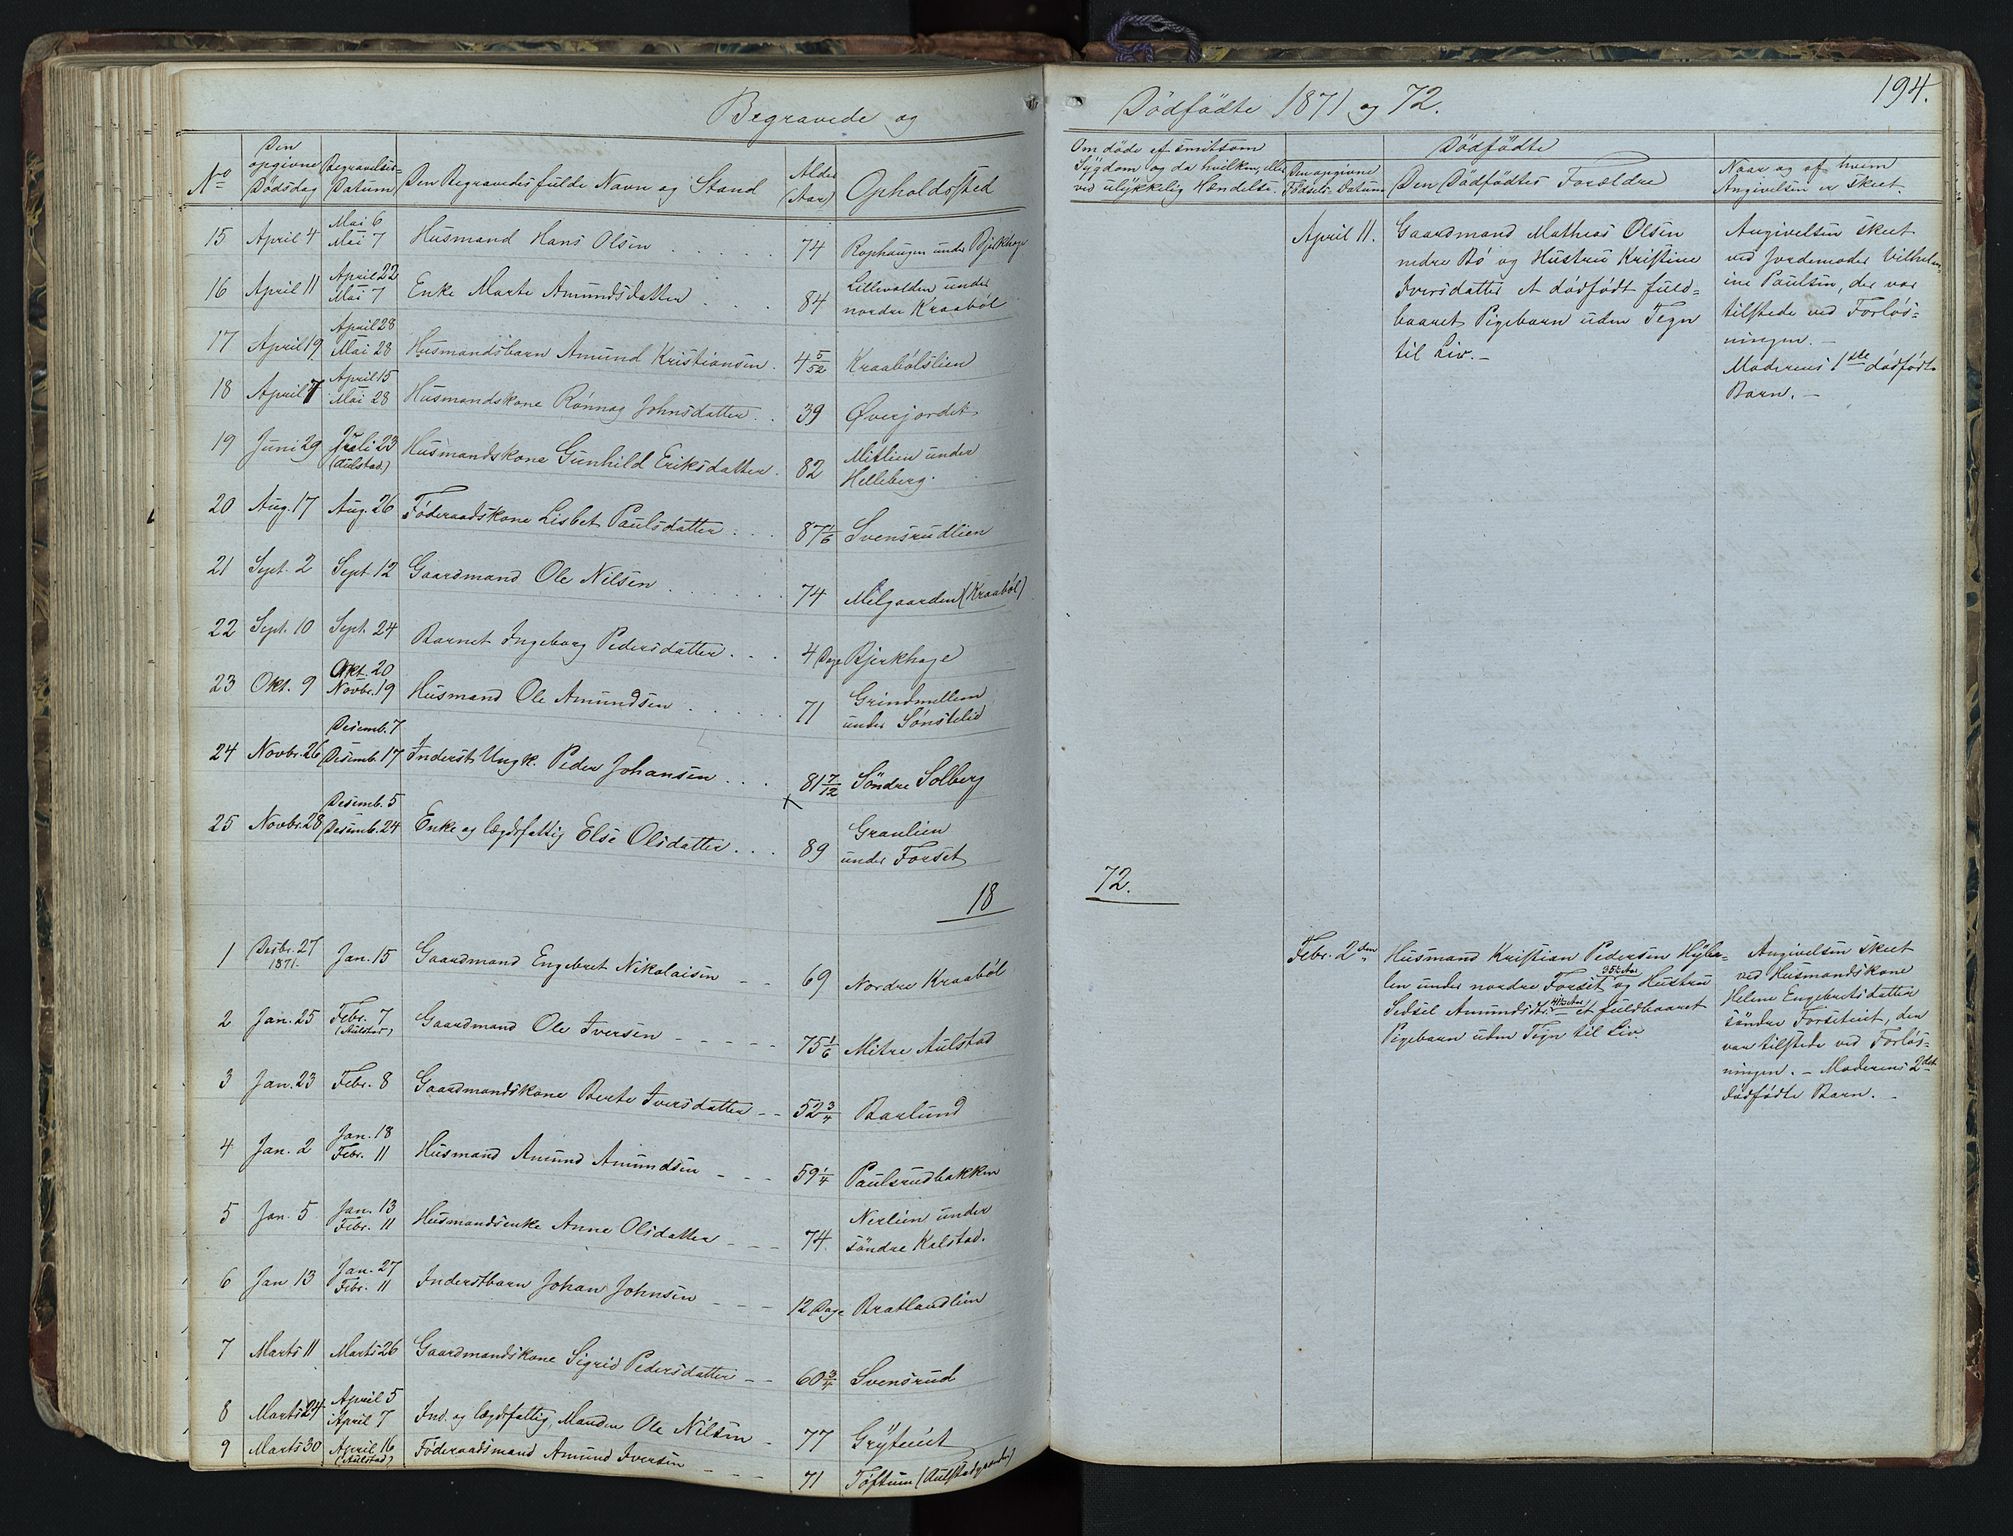 Begravede og
No
Den opgivne Dødsdag
Begravelses-Datum
Den Begravedes fulde Navn og Stand
Alder (Aar)
Opholdssted
15 April 4 Mai 6 Mai 7 Husmand Hans Olsen 74 Rophaugen under Bjerkhage
16 April 11 April 22 Mai 7 Enke Marte Amundsdatter 84 Lillevolden under nordre Kraabøl
17 April 19 April 28 Mai 28 Husmandsbarn Amund Kristiansen 4 5/52 Kraabølslien
18 April 7 April 15 Mai 28 Husmandskone Rønnog Johnsdatter 39 Øverjordet
19 Juni 29 Juli 23 (Aulstad) Husmandskone Gunhild Eriksdatter 82 Mitlien under Helleberg.
20 Aug. 17 Aug. 26 Föderaadskone Lisbet Paulsdatter 87 1/6 Svensrudlien
21 Sept. 2 Sept 12 Gaardmand Ole Nilsen 74 Melgaarden (Kraabøl)
22 Sept. 10 Sept. 24 Barnet Ingeborg Pedersdatter 4 Dage Bjerkhage
23 Okt. 9 Okt. 20 Novbr. 19 Husmand Ole Amundsen 71 Grindmellem under Sønstelie
24 Novbr. 26 Desemb. 7 Desemb. 17 Inderst Ungk. Peder Johansen 81 7/12 Söndre Solberg
25 Novbr. 28 Desemb. 5 Desemb. 24 Enke og lægdsfattig Else Olsdatter 89 Graulien under Forset
18
1 Desbr. 27 1871. Jan. 15 Gaardmand Engebret Nikolaisen 69 Nordre Kraabøl
2 Jan. 25 Febr. 7 (Aulstad) Gaardmand Ole Iversen 75 1/6 Mitre Aulstad
3 Jan. 23 Febr. 8 Gaardmandskone Berte Iversdatter 52 3/4 Baelund
4 Jan. 2 Jan. 18 Febr. 11 Husmand Amund Amundsen 59 1/4 Paulsrudbakken
5 Jan. 5 Jan. 13 Febr. 11 Husmandsenke Anne Olsdatter 74. Nerlien under söndre Kalstad.
6 Jan 13 Jan. 27 Febr. 11 Inderstbarn Johan Johnsen 12 Dage Bratlandlien
7 Marts 11 Marts 26 Gaardmandskone Sigrid Pedersdatter 60 3/4 Svensrud
8 Marts 24 April 5 April 7 Ind. og lægdsfattig, Manden Ole Nilsen 77 Gryteiet
9 Marts 30 April 16 (Aulstad) Föderaadsmand Amund Iversen 71 Toftum (Aulstad
194.
Dödfødte 1871 og 72.
Om døde af smitsom
Sygdom og da hvilken, eller
ved ulykkelig Hændelse.
Den opgivne
Fødsels-Datum
Dødfødte
Den Dødfødtes Forældre
Naar og af hvem
Angivelsen er skeet.
April 11.
Gaardmand Mathias Olsen
nedre Bø og Hustru Kristine
Iversdatter et dødfødt fuld-
baaret Pigebarn uden Tegn
til Liv. -
Angivelsen skeet
ved Jordemoder Vilhelm-
ine Paulsen, der var
tilstede ved Forløs-
ningen. -
Moderens 1ste dødfødte
Barn. -
72.
Febr. 2den
Husmand Kristian Pedersen
len under nordre Forset og Hustru
Sidsel Amundsdtr. et fuldbaaret
Pigebarn uden Tegn til Liv.
Angivelsen skeet
ved Husmandskone
Helene Engebretsdatter
söndre Forseteiet, der
var tilstede ved Forløs-
ningen. - Moderens 2det
dødfødte Barn. -